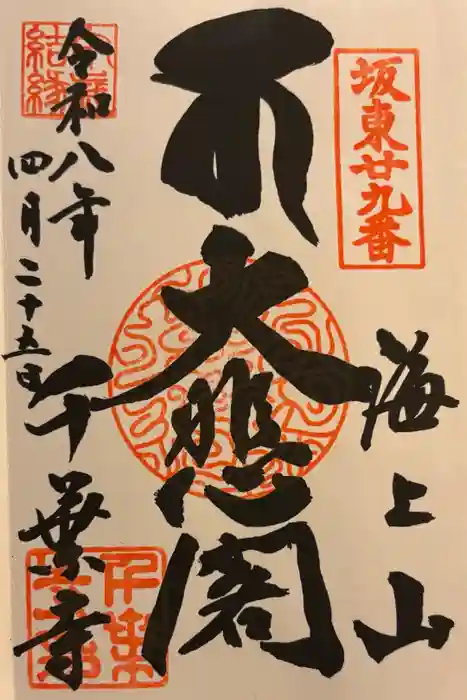 坂東廿九番
海上山
大悲閣
千葉寺
令和八年
四月二十五日
結縁